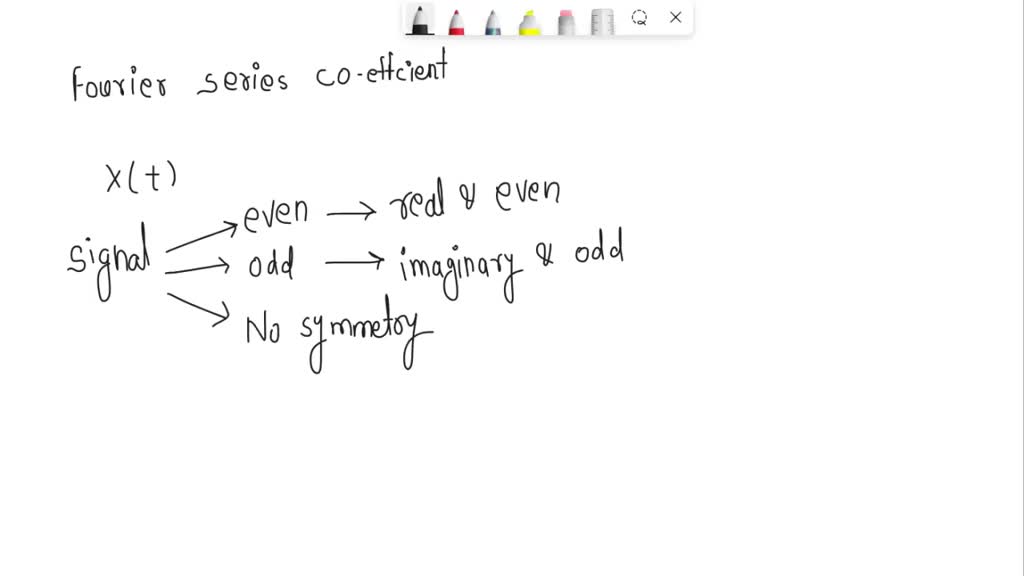 Fourier series co-effcient
x(t)
signal
even → real & even
odd → imaginary & odd
No symmetoy